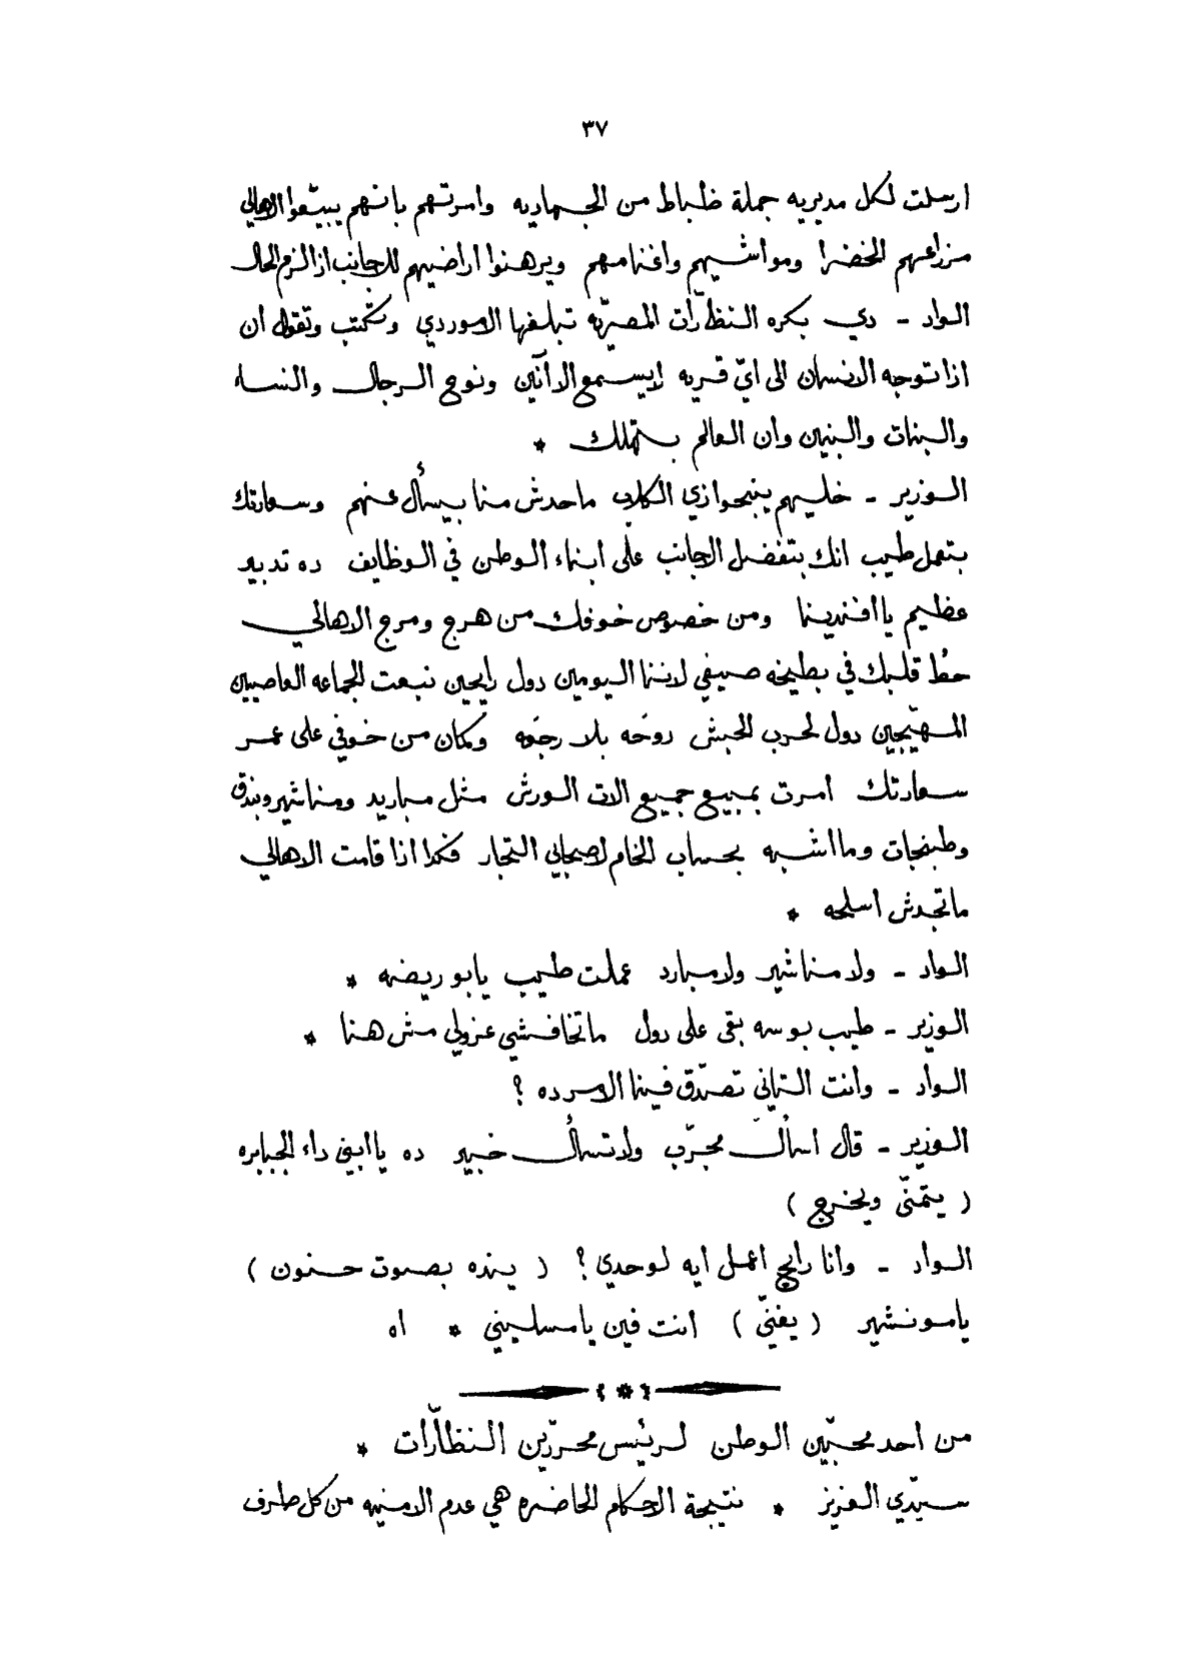 ٣٧
ارسلت لكل مديريه جملة ظباط من الجهاديه وامرتهم بانهم يبيّعوا الاهالي
مزراعهم الخضرا ومواشيهم واغنامهم ويرهنوا اراضيهم للاجانب اذا لزم الحال
الواد - دي بكره النظّارات المصريّه تبلغها الاوردي وتكتب وتقول ان
اذا توجه الانسان الى ايّ قريه لا يسمع الا أنّين ونوح الرجال والنساء
والبنات والبنين وان العالم بتهلك *
الوزير - خليهم ينبحوا زي الكلاب ماحدش منا بيسأل عنهم وسعادتك
بتعمل طيب انك بتفضل الاجانب على ابناء الوطن في الوظايف ده تدبير
عظيم يا افندينا ومن خصوص خوفك من هرج ومرج الاهالي
حط قلبك في بطيخه صيفي لاننا اليومين دول رايحين نبعت للجماعه العاصيين
المهيّجين دول لحرب الحبش روحه بلا رجعه وكمان من خوفي على عمر
سعادتك امرت بمبيع جميع الات الورش مثل مباريد ومناشير وبندق
وطبنجات وما اشبه بحساب الخام لاصحابي التجار فكدا اذا قامت الاهالي
ماتجدش اسلحه *
الواد - ولا مناشير ولا مبارد عملت طيب يابو ريضه *
الوزير - طيب بوسه بقى على دول ماتخافشي عزولي مش هنا *
الواد - وانت التاني تصدّق فينا الامر ده ؟
الوزير - قال اسأل مجرّب ولا تسأل خبير ده يا ابني داء الجبابره
( يتمنّى ويخرج )
الواد - وانا رايح اعمل ايه لوحدي ؟ ( ينده بصوت حنون )
يامونشير ( يغنّي ) انت فين يا مسليني * اه
من احد محبّين الوطن لرئيس محررّين النظّارات *
سيّدي العزيز * نتيجة الاحكام الحاضره هي عدم الامنيه من كل طرف